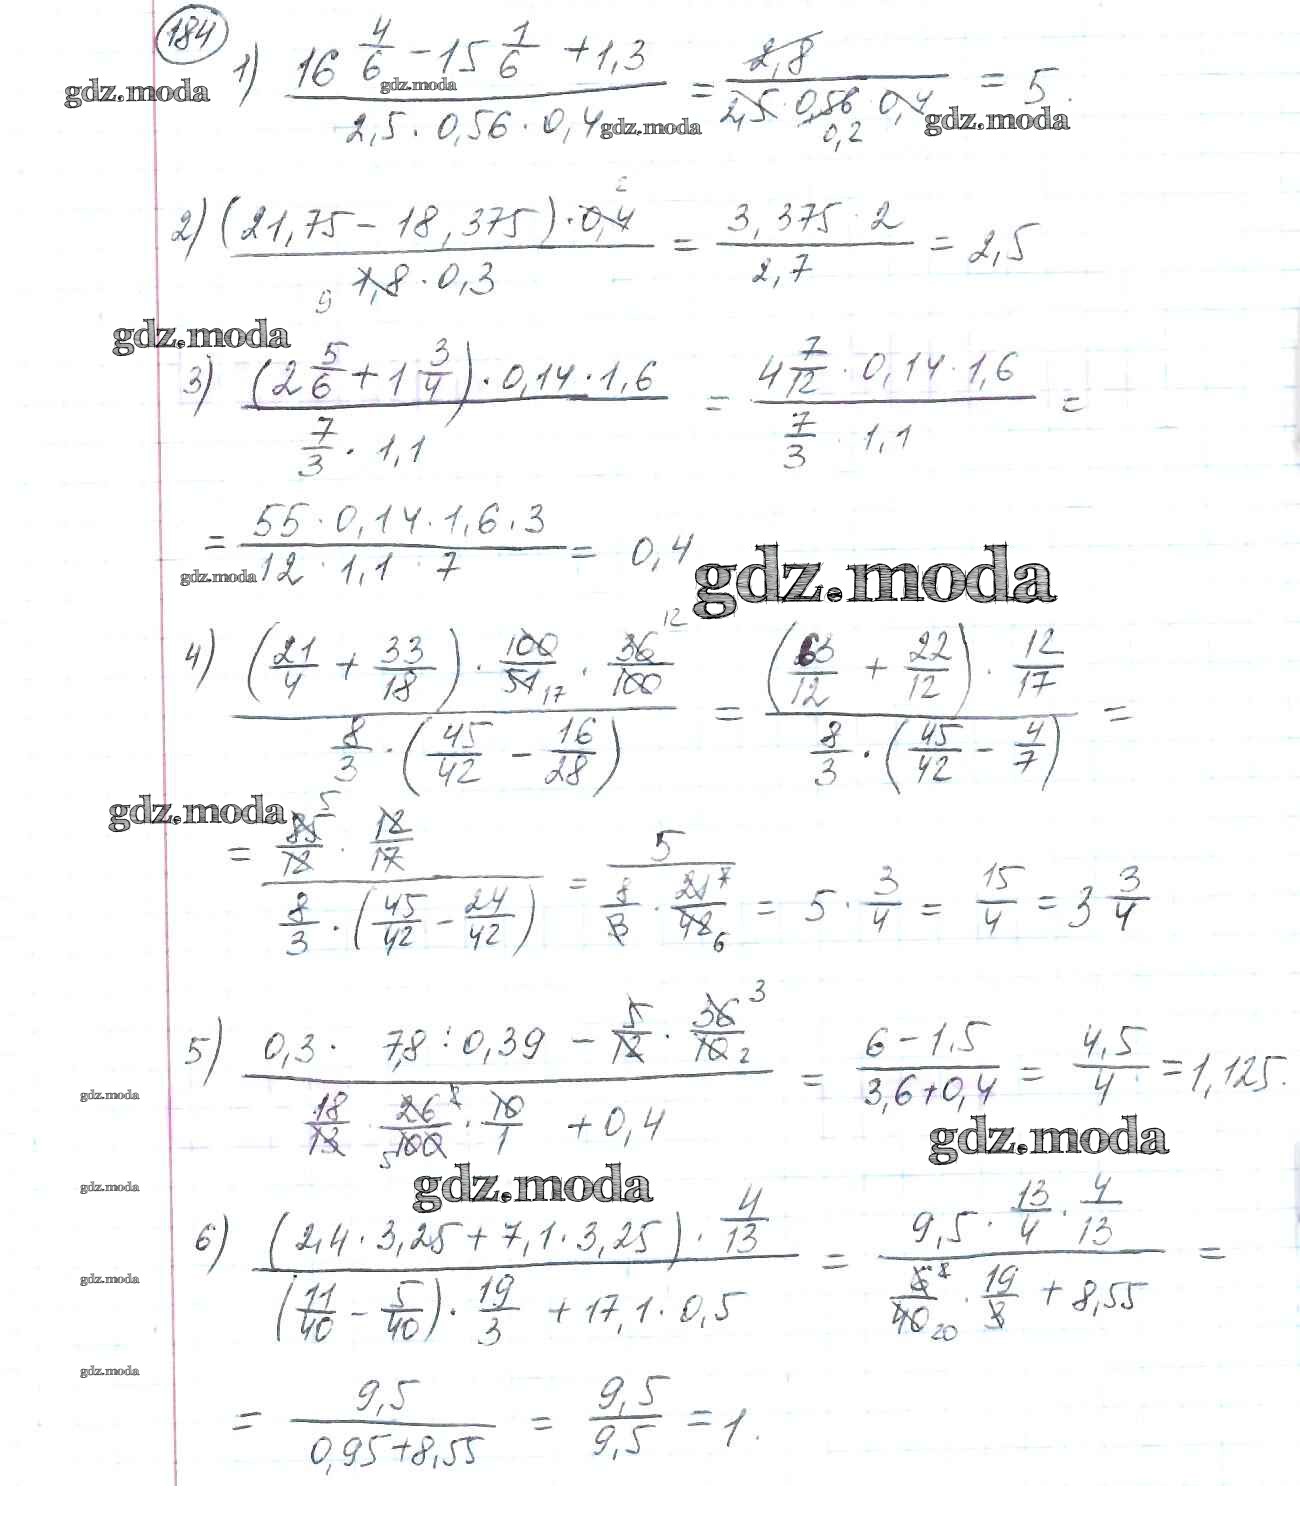 184
1) (16 4/6 − 15 1/6 + 1,3) / (2,5 · 0,56 · 0,4) = 2,8 / (2,5 · 0,56 · 0,4) = 5.
0,2
gdz.moda gdz.moda gdz.moda gdz.moda
2) ((21,75 − 18,375) · 0,4 2) / (9 1,8 · 0,3) = (3,375 · 2) / 2,7 = 2,5
gdz.moda
3) ((2 5/6 + 1 3/4) · 0,14 · 1,6) / (7/3 · 1,1) = (4 7/12 · 0,14 · 1,6) / (7/3 · 1,1) =
= (55 · 0,14 · 1,6 · 3) / (12 · 1,1 · 7) = 0,4
gdz.moda gdz.moda
4) ((21/4 + 33/18) · 100/51 17 · 36 12/100) / (8/3 · (45/42 − 16/28)) = ((63/12 + 22/12) · 12/17) / (8/3 · (45/42 − 4/7)) =
gdz.moda
= (85 5/12 · 12/17) / (8/3 · (45/42 − 24/42)) = 5 / (8/3 · 21 7/42 6) = 5 · 3/4 = 15/4 = 3 3/4
5) (0,3 · 7,8 : 0,39 − 5/12 · 36 3/10 2) / (18/13 · 26 2/100 5 · 10/1 + 0,4) = (6 − 1,5) / (3,6 + 0,4) = 4,5/4 = 1,125.
gdz.moda gdz.moda
gdz.moda gdz.moda
6) ((2,4 · 3,25 + 7,1 · 3,25) · 4/13) / ((11/40 − 5/40) · 19/3 + 17,1 · 0,5) = (9,5 · 13/4 · 4/13) / (6/40 20 · 19/3 + 8,55) =
gdz.moda
gdz.moda
= 9,5 / (0,95 + 8,55) = 9,5/9,5 = 1.